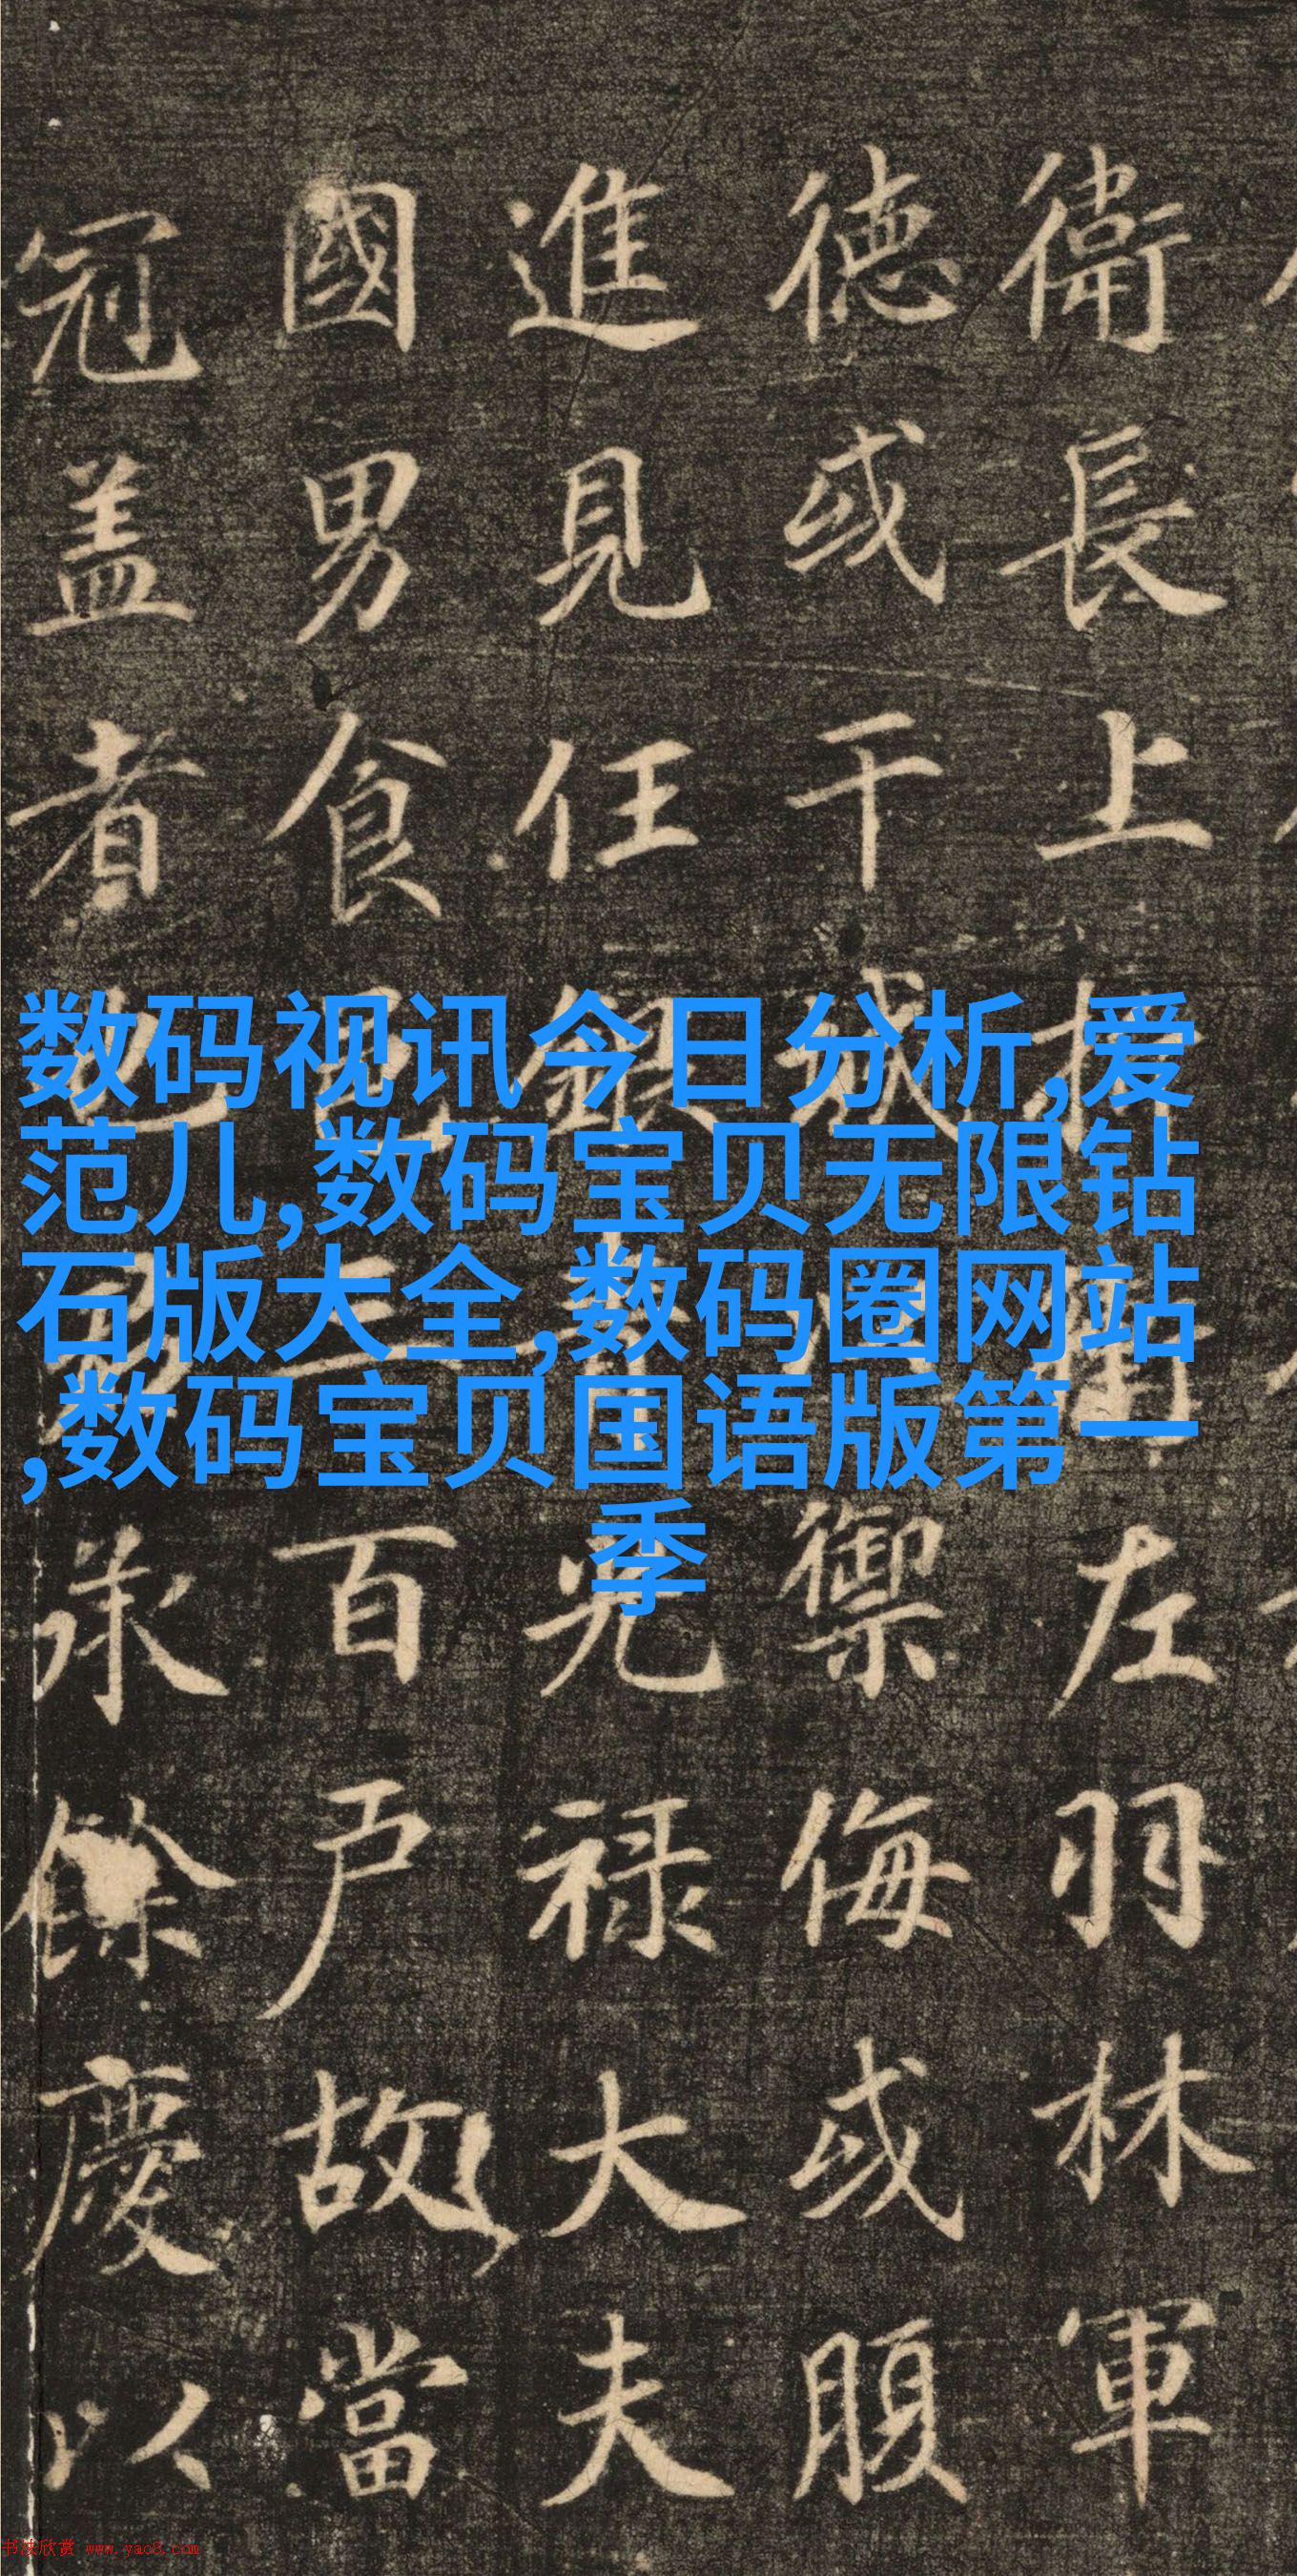 衛長上折衝左羽林軍
德或干城禦侮或腹
進見任銀青光禄大夫
國男食邑三百户故當
冠盖者也承餘慶以
数码视讯今日分析,爱
范儿,数码宝贝无限钻
石版大全,数码圈网站
,数码宝贝国语版第一
季
书法欣赏 www.yac8.com